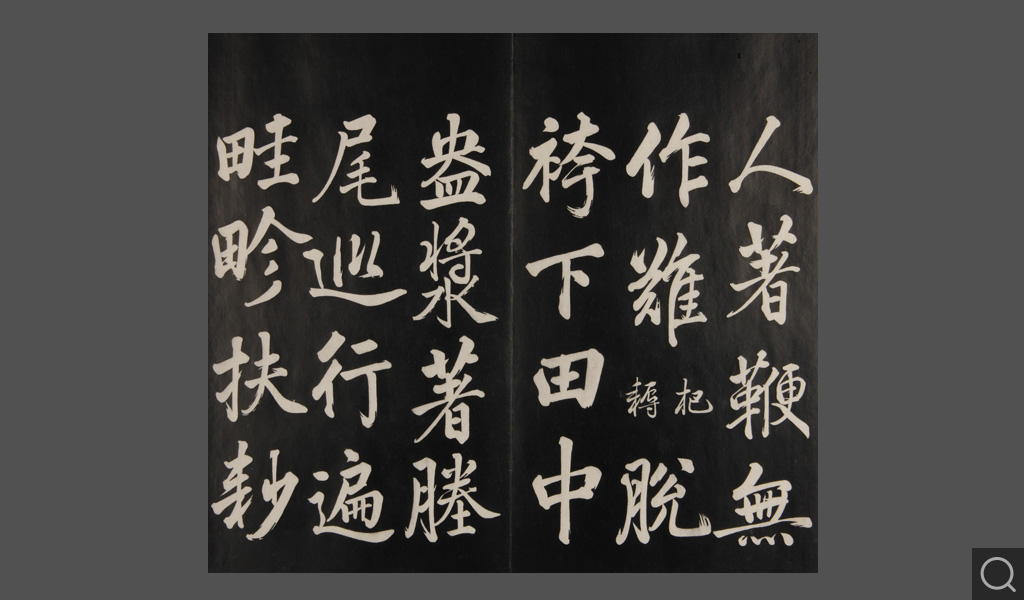 人著鞭無
作難杷耨脫
袴下田中
盎漿著塍
尾巡行遍
畦畛扶耖